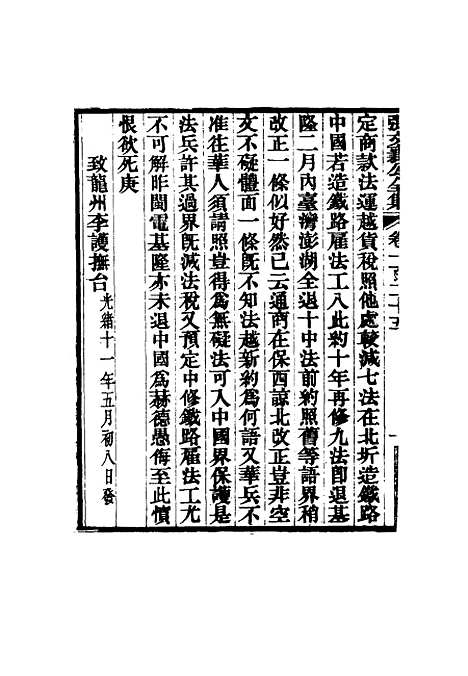 張文襄公全集 卷一百二十五 一
定商款法運越貨稅照他處較減七法在北圻造鐵路
中國若造鐵路雇法工入此約十年再修九法卽退基
隆二月內臺灣澎湖全退十中法前約照舊等語界稍
改正一條似好然已云通商在保西諒北改正豈非空
文不礙體面一條旣不知法越新約爲何語又華兵不
准往華人須請照豈得爲無礙法可入中國界保護是
法兵許其過界旣減法稅又預定中修鐵路雇法工尤
不可解昨閩電基隆亦未退中國爲赫德愚侮至此憤
恨欲死庚
致龍州李護撫台 光緒十一年五月初八日發